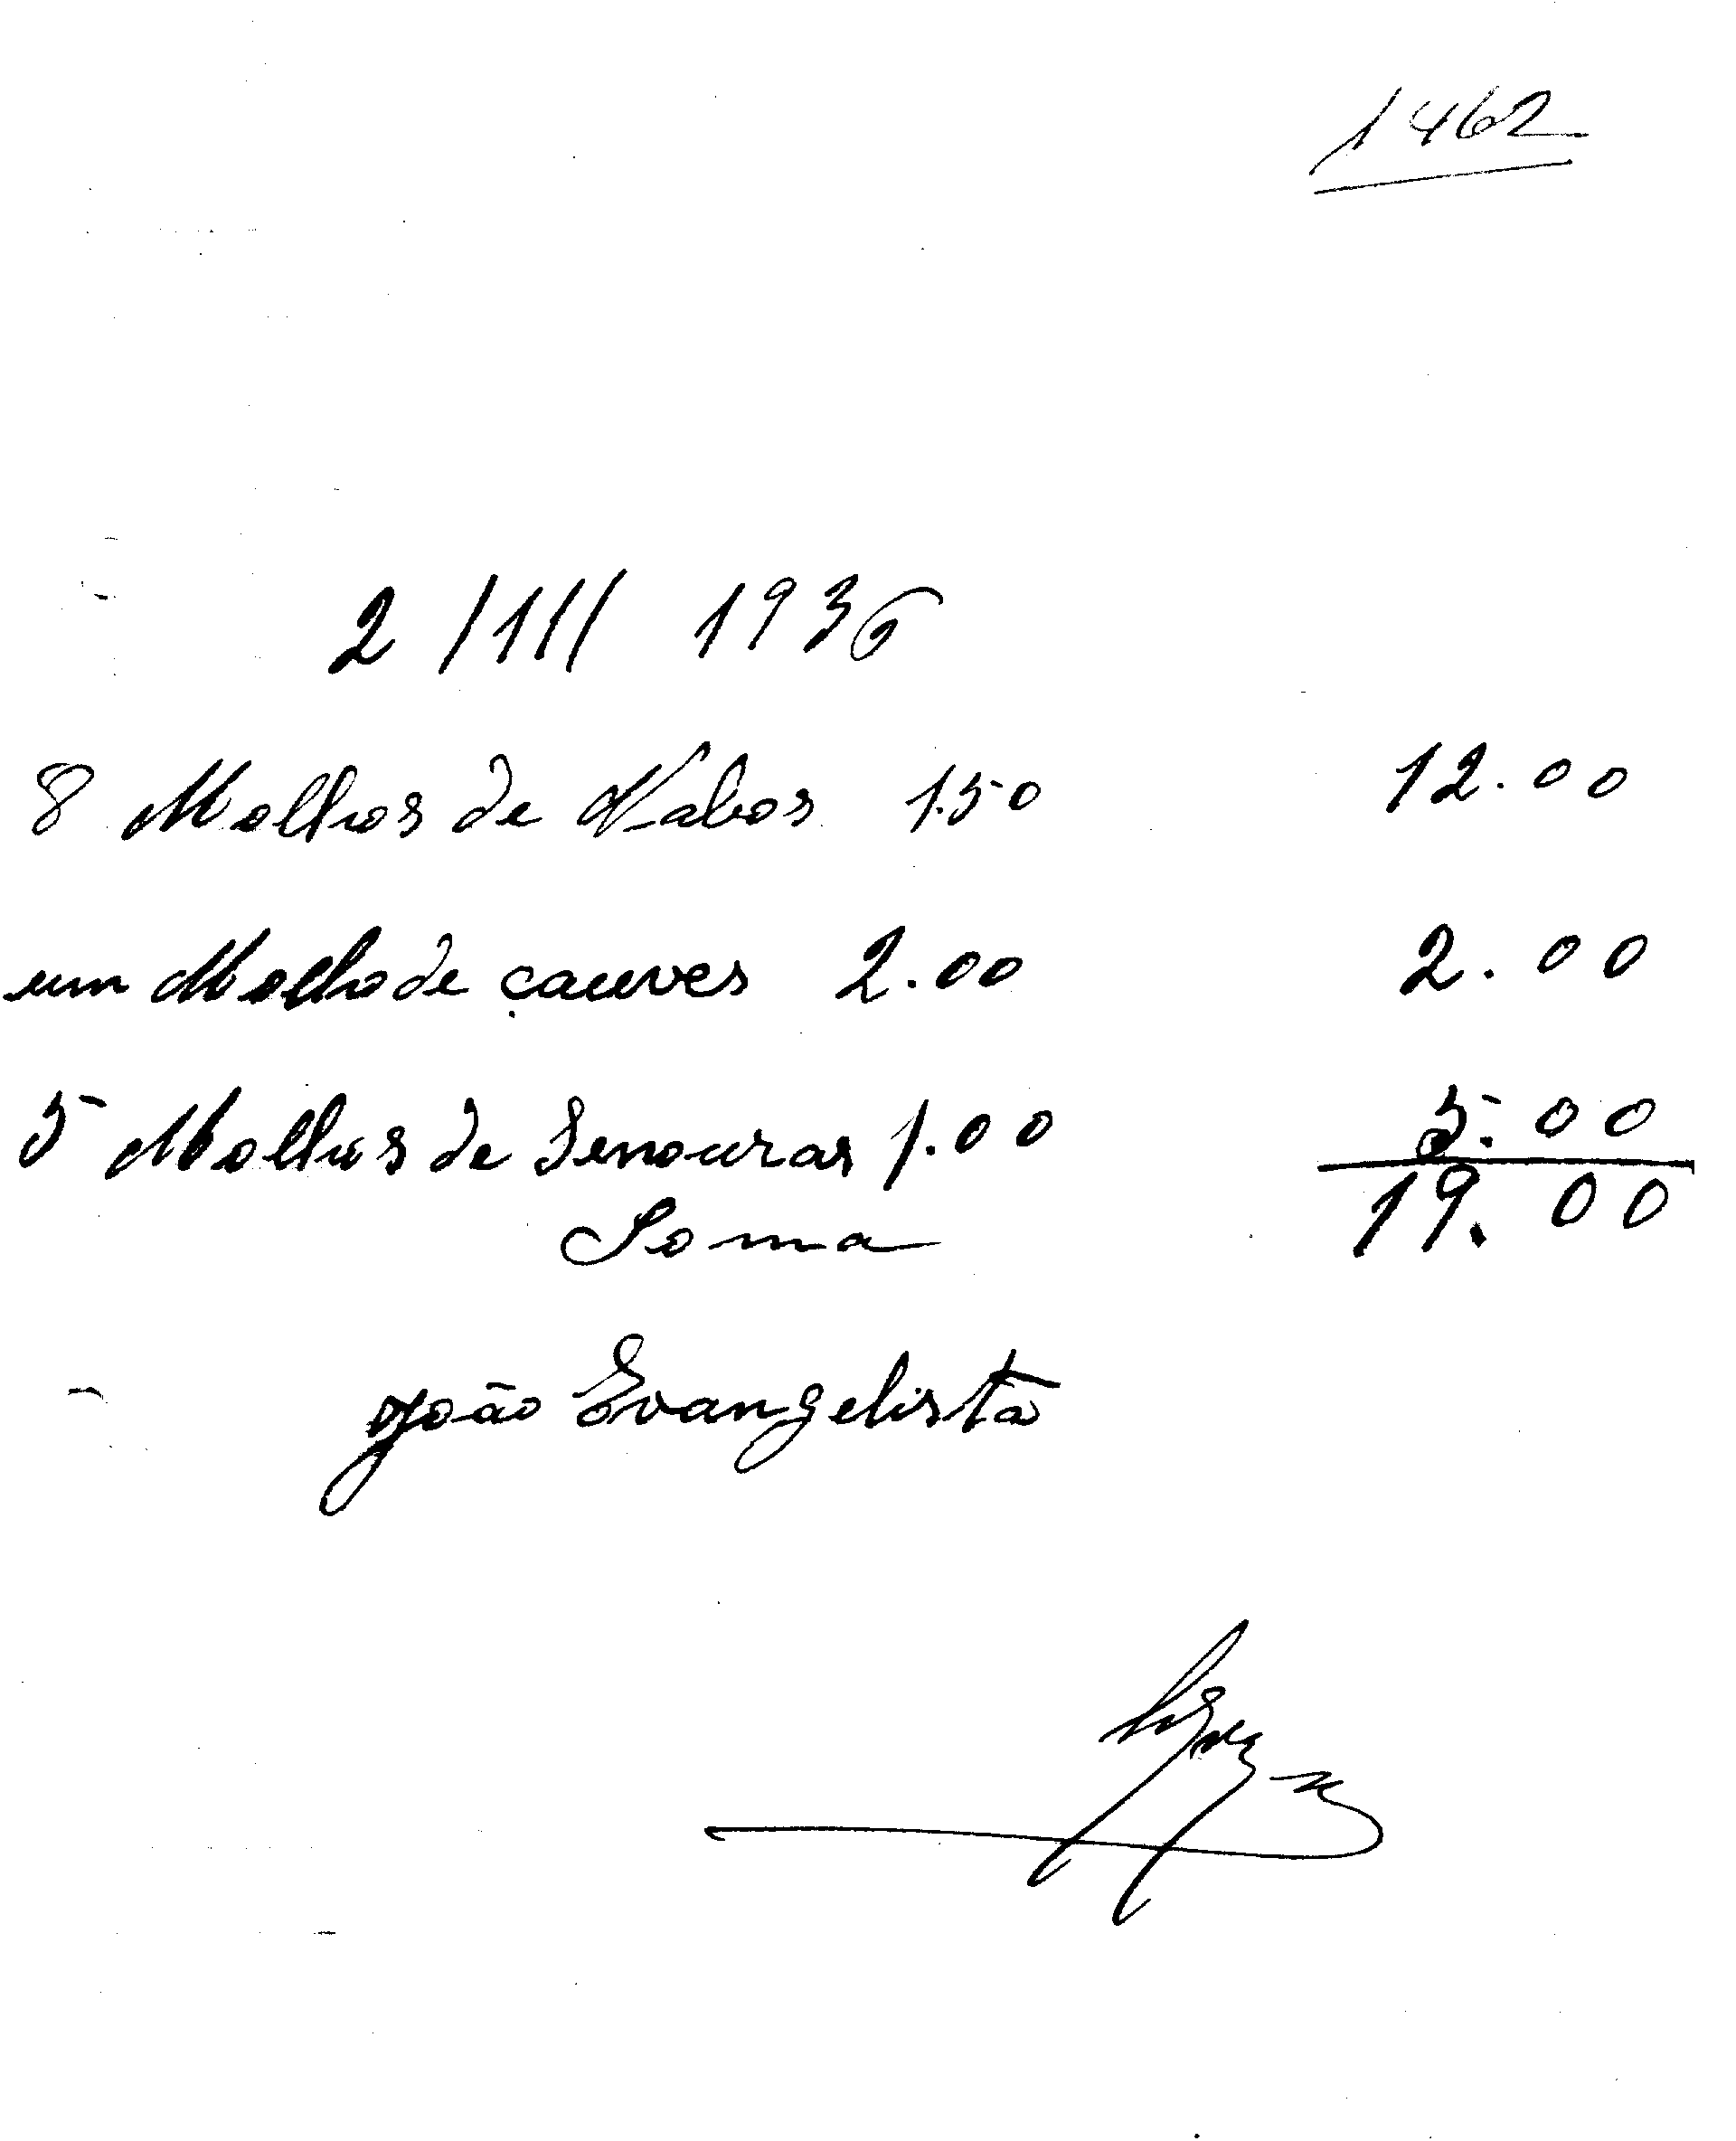 1462
2 / 11 / 1936
8 Molhos de Nabos 1.50 12.00
um Molho de çauves 2.00 2.00
5 Molhos de Senouras 1.00 5.00
Soma 19.00
João Evangelista